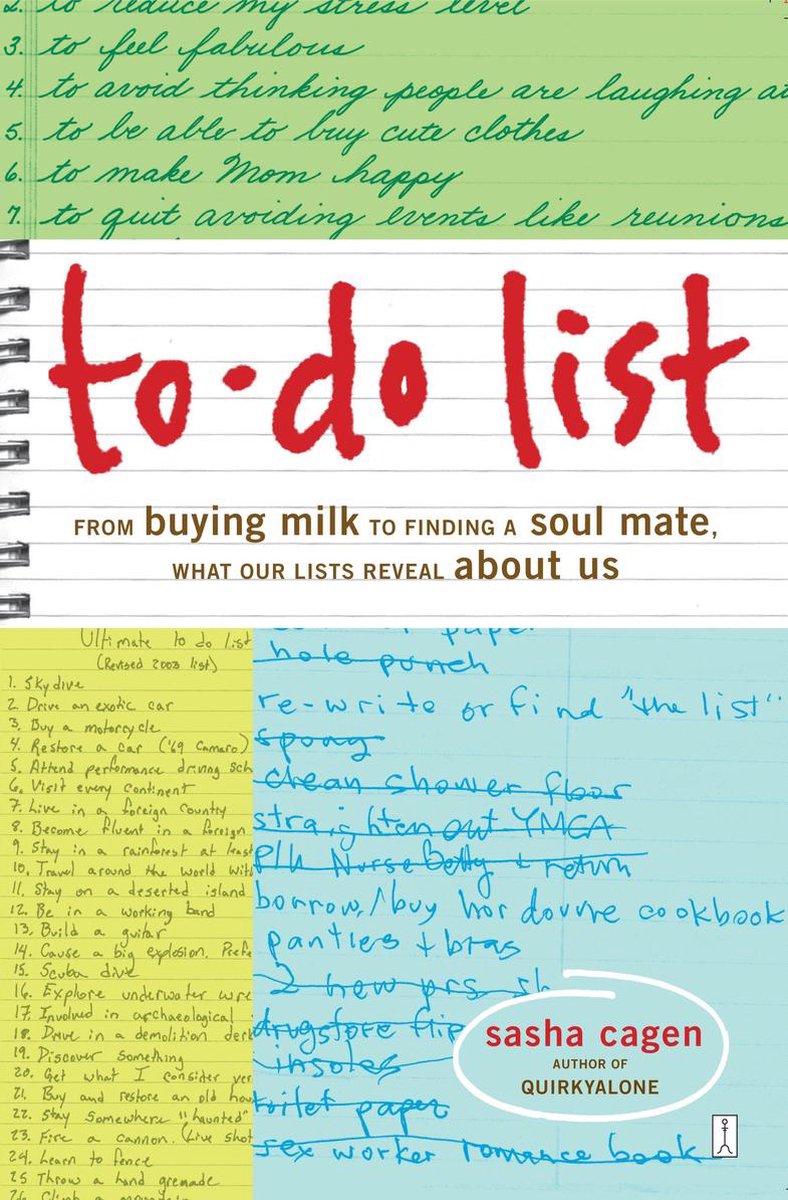 2. to reduce my stress level
3. to feel fabulous
4. to avoid thinking people are laughing at
5. to be able to buy cute clothes
6. to make Mom happy
7. to quit avoiding events like reunions
to-do list
FROM buying milk TO FINDING A soul mate,
WHAT OUR LISTS REVEAL about us
Ultimate to do list
(Revised 2003 list)
1. Skydive
2. Drive an exotic car
3. Buy a motorcycle
4. Restore a car ('69 Camaro)
5. Attend performance driving sch
6. Visit every continent
7. Live in a foreign country
8. Become fluent in a foreign
9. Stay in a rainforest at least
10. Travel around the world with
11. Stay on a deserted island
12. Be in a working band
13. Build a guitar
14. Cause a big explosion. Prefe
15. Scuba dive
16. Explore underwater wre
17. Involved in archaeological
18. Drive in a demolition derb
19. Discover something
20. Get what I consider ver
21. Buy and restore an old hou
22. Stay somewhere "haunted"
23. Fire a cannon. (Live shot
24. Learn to fence
25 Throw a hand grenade
paper
hole punch
re-write or find "the list"
clean shower floor
straighten out YMCA
Nurse Betty + return
borrow/buy hor douvre cookbook
panties + bras
2 new prs sh
drugstore flip
insoles
toilet paper
sex worker romance book
sasha cagen
AUTHOR OF
QUIRKYALONE